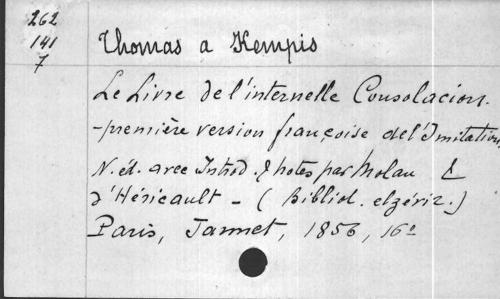 262
141
7
Thomas a Kempis
Le Livre de l'internelle Consolacion.
-première version françoise de l'Imitation,
N. éd. avec Introd. & notes par Molau &
d'Héricault - ( Bibliol. elzévir. )
Paris, Jannet, 1856, 16º